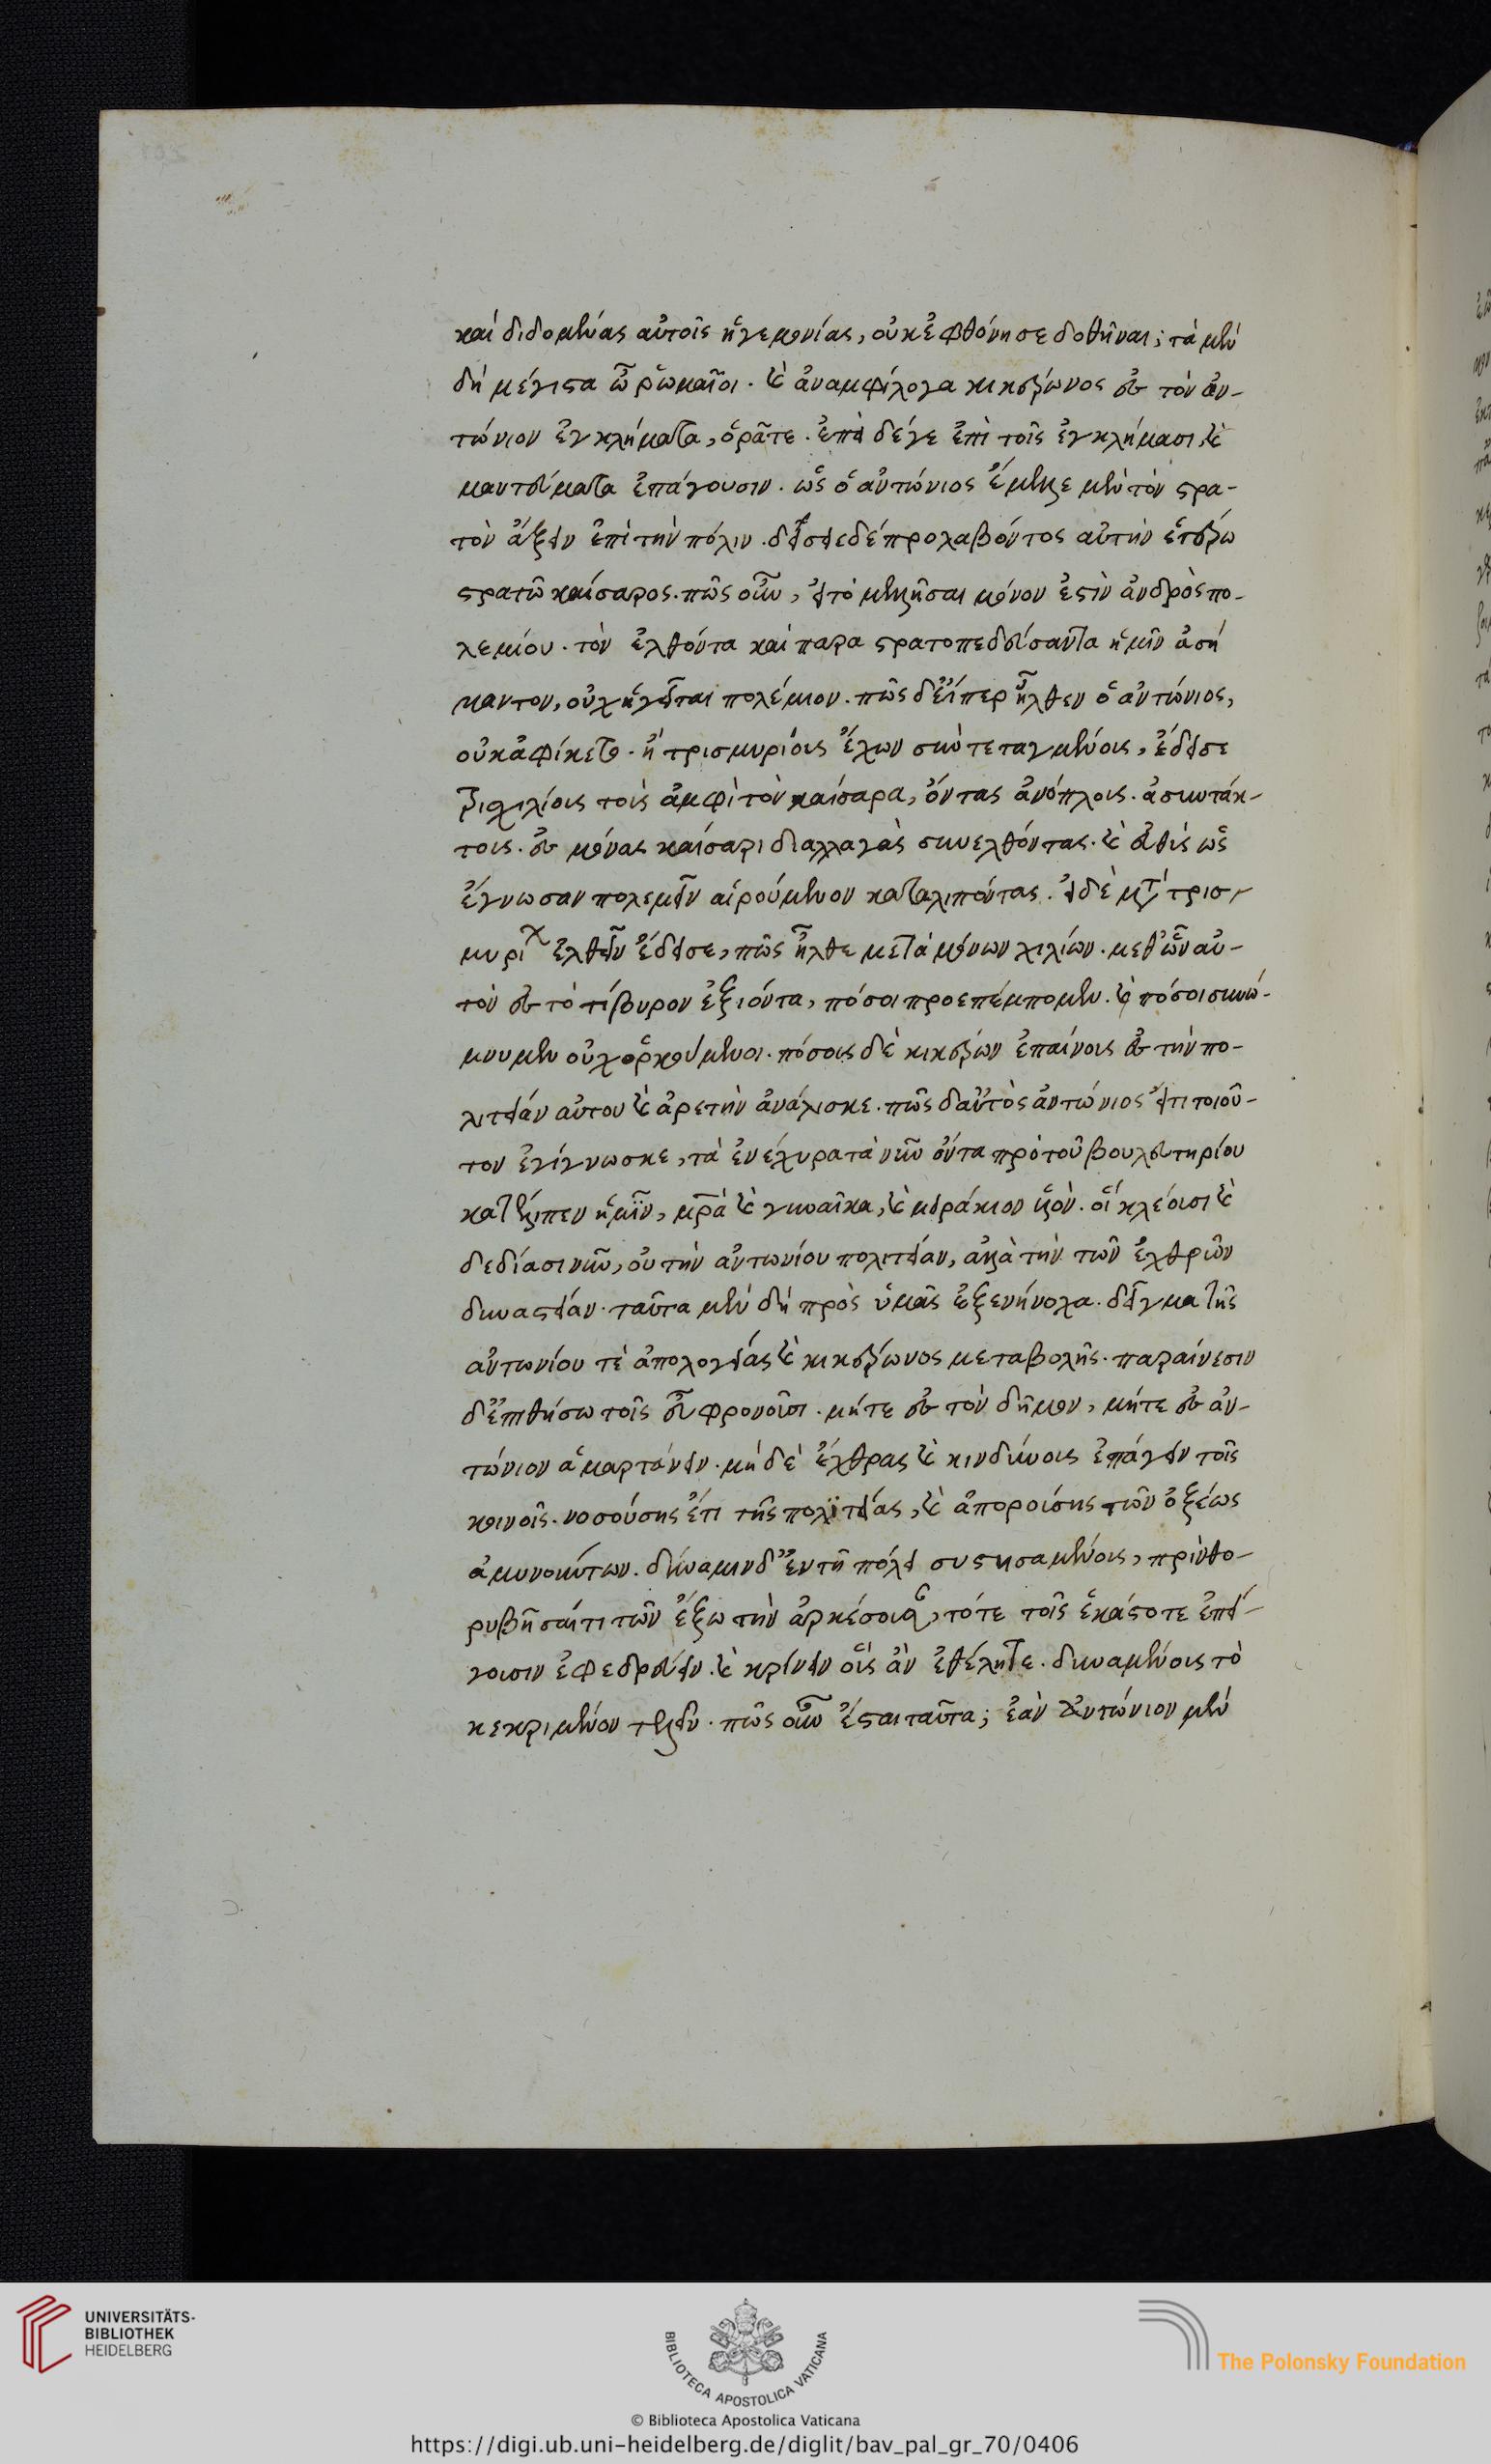 καὶ διδομένας αὐτοῖς ἡγεμονίας, οὐκ ἐφθόνησε δοθῆναι; τὰ μὲν
δὴ μέγιστα ὦ ῥωμαῖοι. καὶ ἀναμφίλογα κικέρωνος ἐς τὸν ἀν-
τώνιον ἐγκλήματα, ὁρᾶτε. ἐπεὶ δέ γε ἐπὶ τοῖς ἐγκλήμασι, καὶ
μαντεύματα ἐπάγουσιν. ὡς ὁ ἀντώνιος ἔμελλε μὲν τὸν στρα-
τὸν ἄξειν ἐπὶ τὴν πόλιν. δείσειε δὲ προλαβόντος αὐτὴν ἑτέρω
στρατῶ καίσαρος. πῶς οὖν, εἰ τὸ μελλῆσαι μόνον ἐστὶν ἀνδρὸς πο-
λεμίου. τὸν ἐλθόντα καὶ παρα στρατοπεδεύσαντα ἡμῖν ἀσή
μαντον, οὐχ ἡγεῖται πολέμιον. πῶς δ' εἴπερ ἦλθεν ὁ ἀντώνιος,
οὐκ ἀφίκετο. ἢ τρισμυρίους ἔχων συντεταγμένους, ἔδεισε
τρισχιλίους τοὺς ἀμφὶ τὸν καίσαρα, ὄντας ἀνόπλους. ἀσυντάκ-
τους. ἐς μόνας καίσαρι διαλλαγὰς συνελθόντας. καὶ εὐθὺς ὡς
ἔγνωσαν πολεμεῖν αἱρούμενον καταλιπόντας. εἰ δὲ μετὰ τρισ-
μυρί ἐλθεῖν ἔδεισε, πῶς ἦλθε μετὰ μόνων χιλίων. μεθ' ὧν αὐ-
τὸν ἐς τὸ τίβυρον ἐξιόντα, πόσοι προεπέμπομεν. καὶ πόσοι συνώ-
μνυμεν οὐχ ὁρκούμενοι. πόσους δὲ κικέρων ἐπαίνους ἐς τὴν πο-
λιτείαν αὐτου καὶ ἀρετὴν ἀνάλισκε. πῶς δ' αὐτὸς ἀντώνιος εἴ τι τοιοῦ-
τον ἐγίγνωσκε, τὰ ἐνέχυρα τὰ νῦν ὄντα πρὸ τοῦ βουλευτηρίου
κατέλιπεν ἡμῖν, μρα καὶ γυναῖκα, καὶ μειράκιον υἱόν. οἳ κλέουσι καὶ
δεδίασι νῦν, οὐ τὴν ἀντωνίου πολιτείαν, ἀλλὰ τὴν τῶν ἐχθρῶν
δυναστείαν. ταῦτα μὲν δὴ πρὸς ὑμᾶς ἐξενήνοχα. δεῖγμα τῆς
ἀντωνίου τὲ ἀπολογείας καὶ κικέρωνος μεταβολῆς. παραίνεσιν
δ' ἐπιθήσω τοῖς εὖ φρονοῦσι. μήτε ἐς τὸν δῆμον, μήτε ἐς ἀν-
τώνιον ἁμαρτάνειν. μὴ δὲ ἔχθρας καὶ κινδύνους ἐπάγειν τοῖς
κοινοῖς. νοσούσης ἔτι τῆς πολιτείας, καὶ ἀπορούσης τῶν ὀξέως
ἀμυνούντων. δύναμιν δ' ἐν τῆ πόλει συστησαμένους, πρὶν θο-
ρυβῆσαί τι τῶν ἔξω τὴν ἀρκέσουσαν, τότε τοῖς ἑκάστοτε ἐπεί-
γουσιν ἐφεδρεύειν. καὶ κρίνειν οὓς ἂν ἐθέλητε. δυναμένους τὸ
κεκριμένον τελεῖν. πῶς οὖν ἔσται ταῦτα; ἐὰν ἀντώνιον μὲν
UNIVERSITÄTS-
BIBLIOTHEK
HEIDELBERG
BIBLIOTECA APOSTOLICA VATICANA
The Polonsky Foundation
© Biblioteca Apostolica Vaticana
https://digi.ub.uni-heidelberg.de/diglit/bav_pal_gr_70/0406